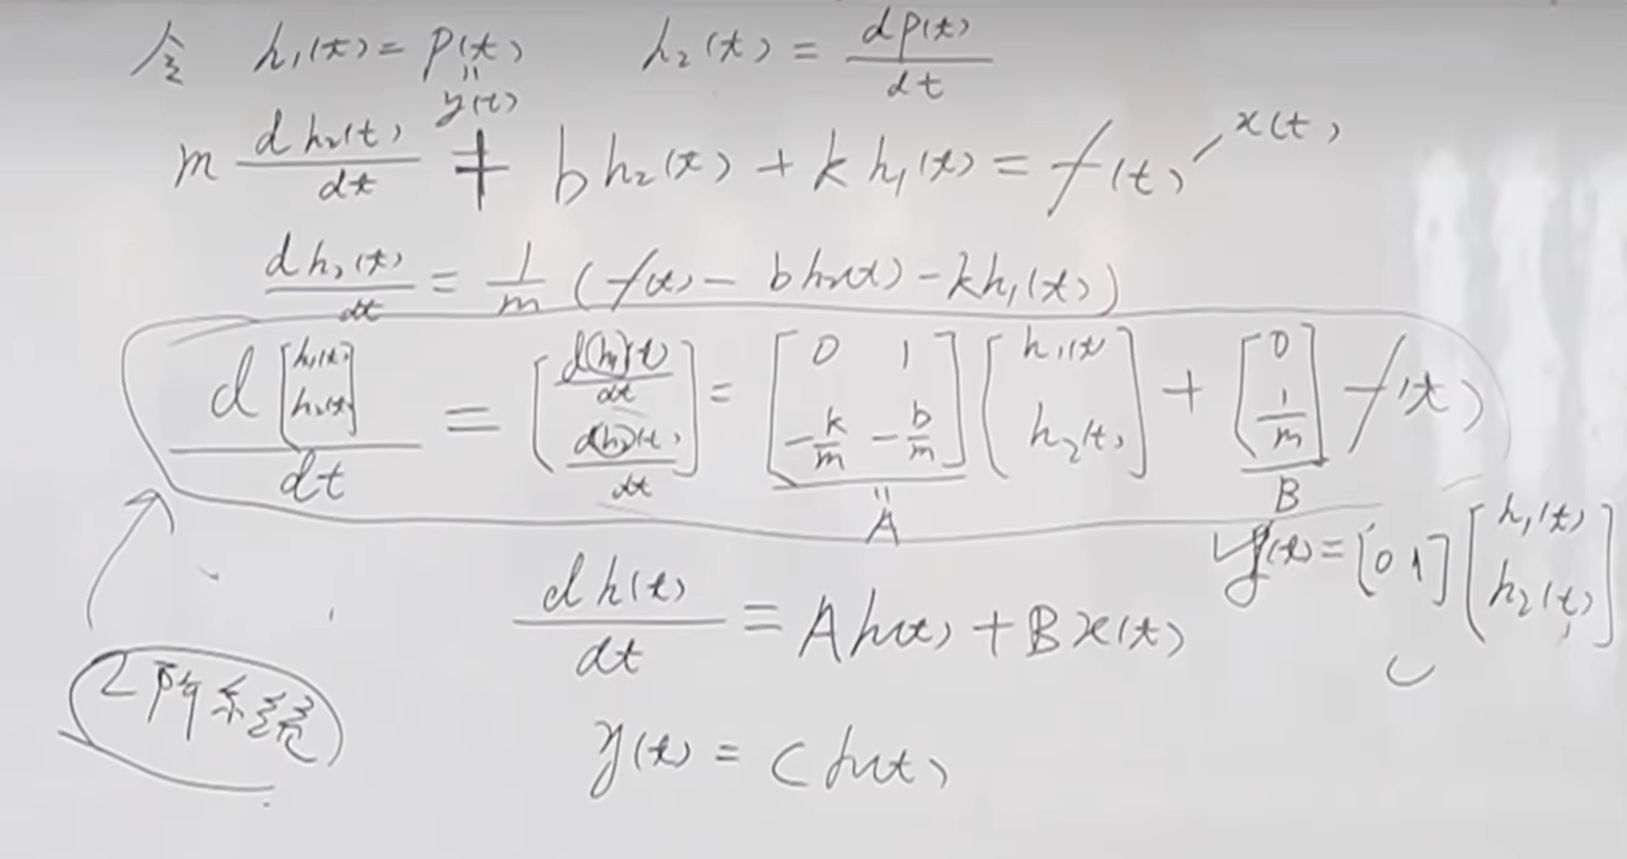 令 h₁(t) = P(t) h₂(t) = dP(t)/dt
" y(t)
m dh₂(t)/dt + b h₂(t) + k h₁(t) = f(t) x(t)
dh₂(t)/dt = 1/m (f(t) - b h₂(t) - k h₁(t))
d[h₁(t) h₂(t)]/dt = [d(h₁)(t)/dt d(h₂)(t)/dt] = [0 1 -k/m -b/m] [h₁(t) h₂(t)] + [0 1/m] f(t)
" A B
y(t) = [0 1] [h₁(t) h₂(t)]
dh(t)/dt = A h(t) + B x(t)
2阶系统
y(t) = C h(t)